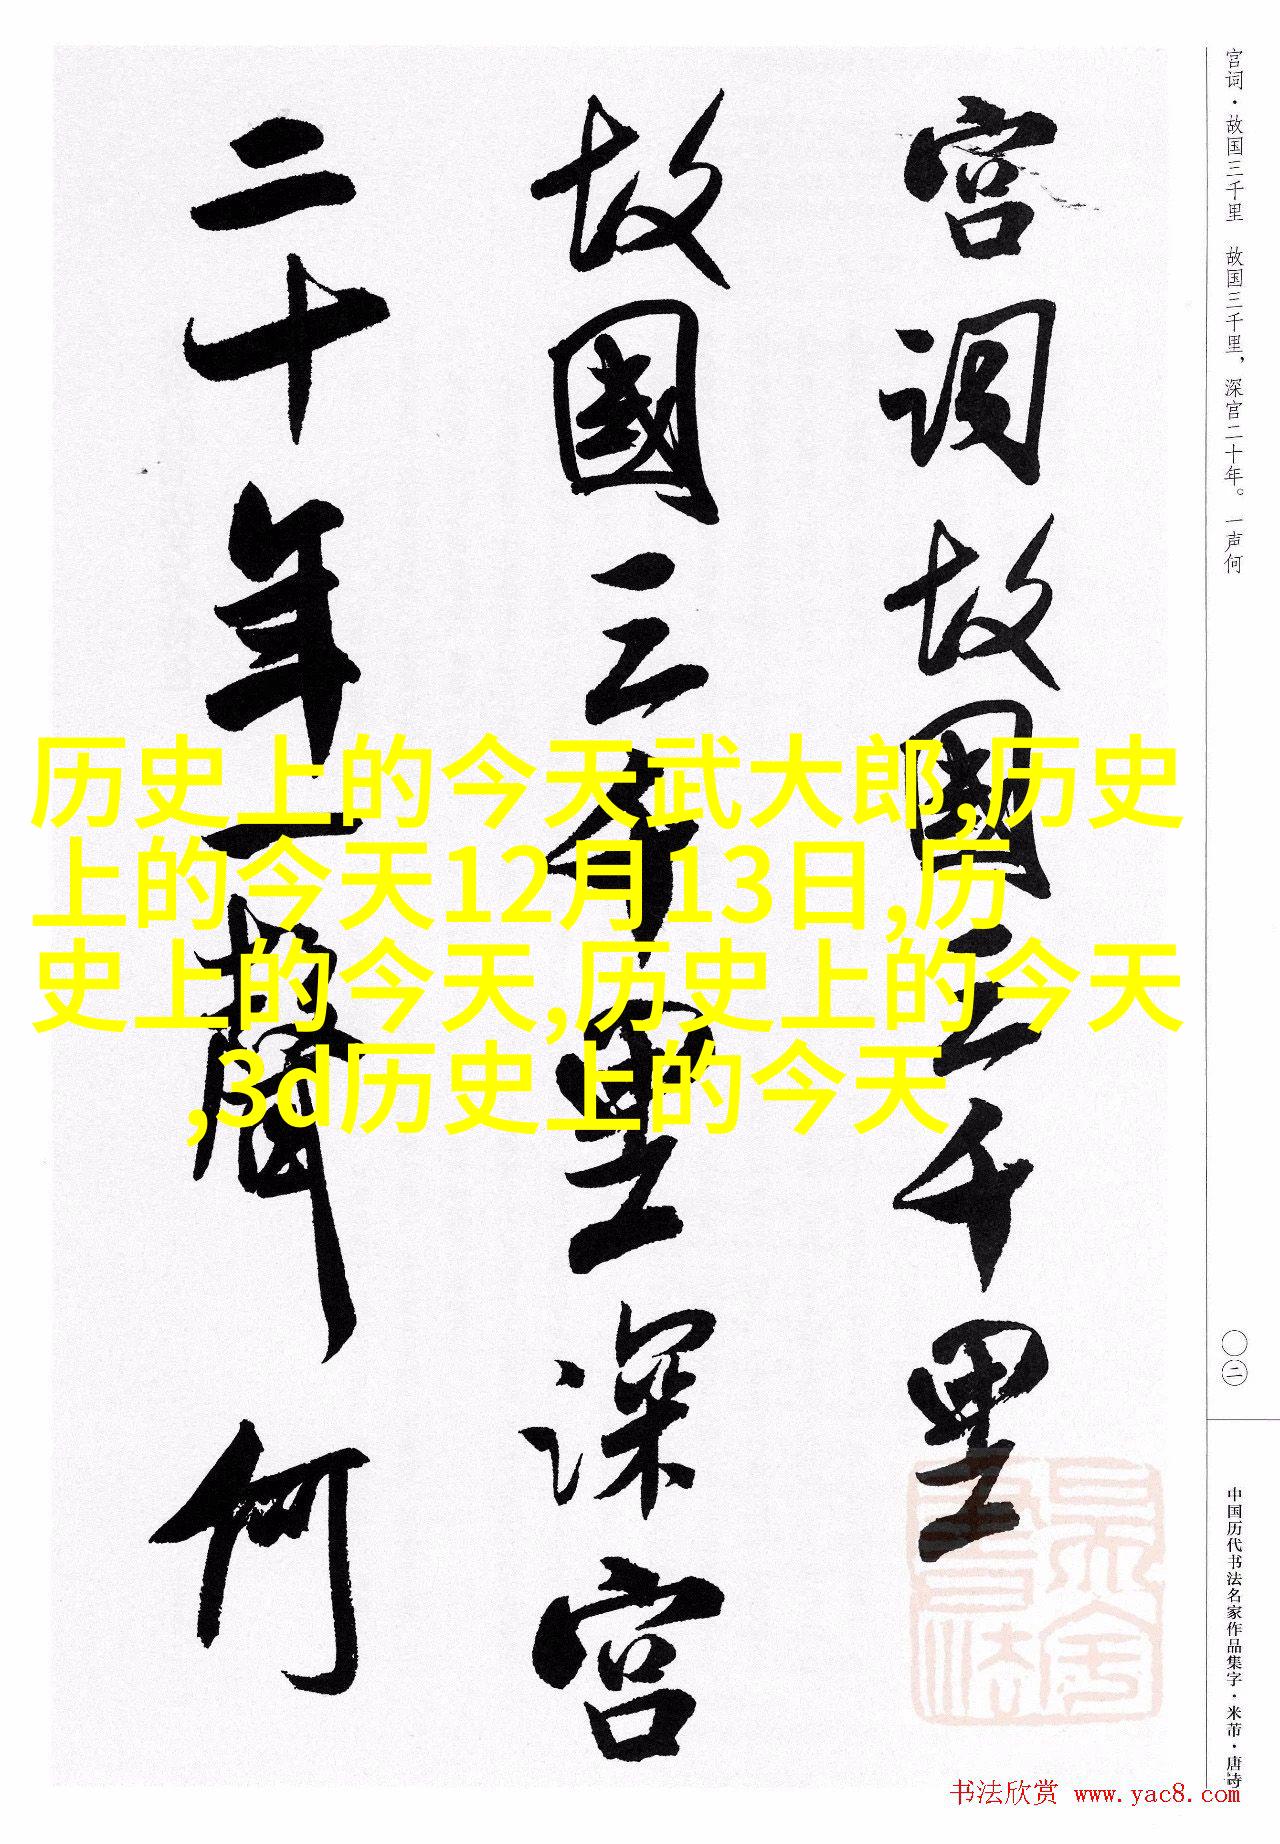 宫词·故国三千里 故国三千里，深宫二十年。一声何
宫词故國三千里
故國三千里深宫
二十年一聲何
历史上的今天武大郎,历史
上的今天12月13日,历
史上的今天,历史上的今天
,3d历史上的今天
〇二
中国历代书法名家作品集字·米芾·唐诗
书法欣赏 www.yac8.com